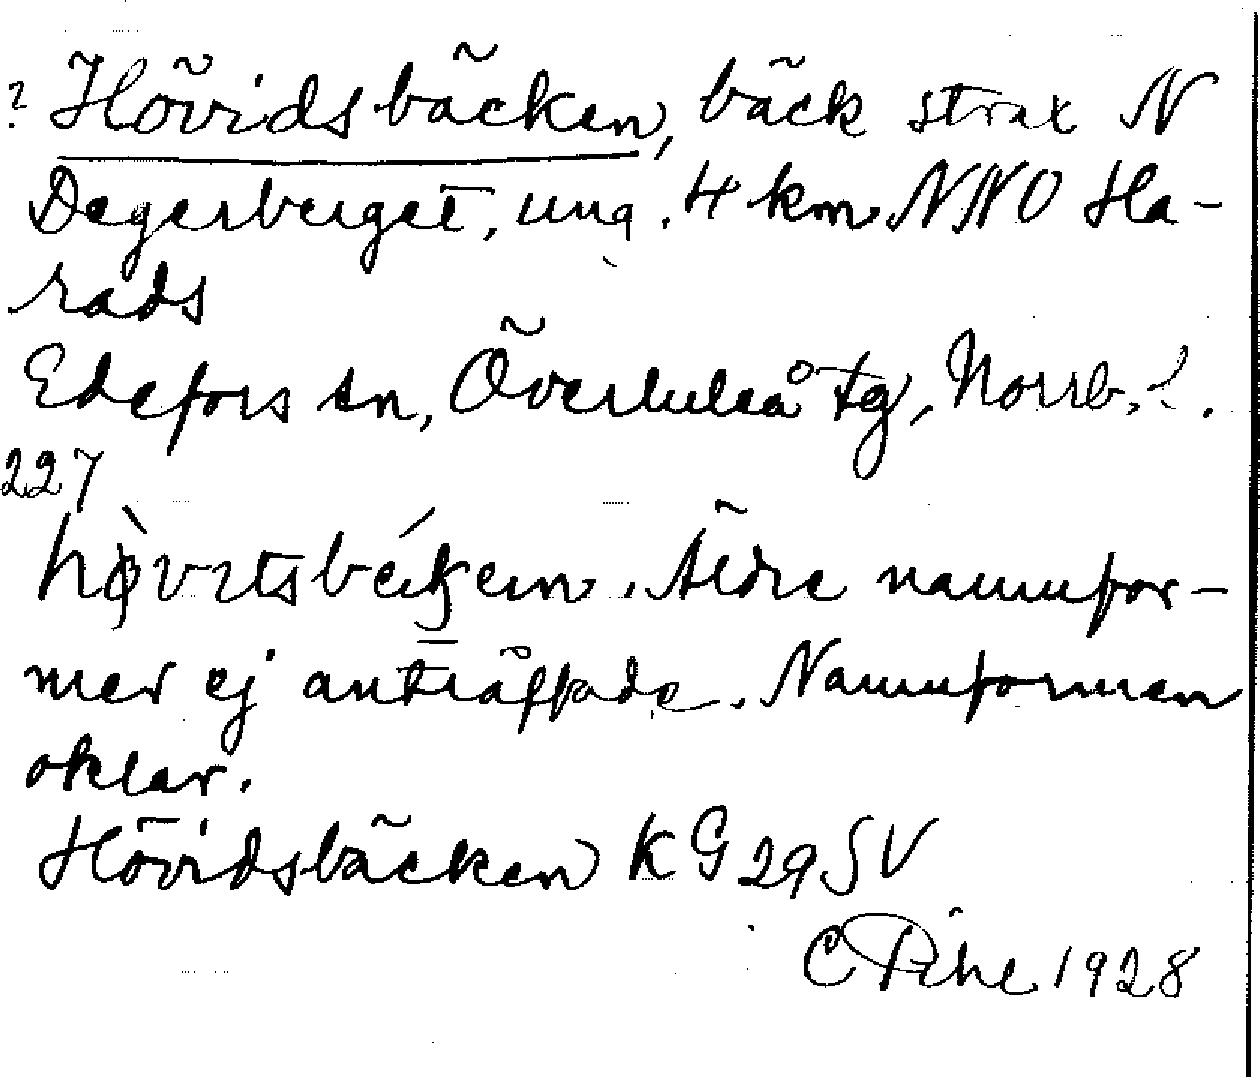 ? Hövidsbäcken, bäck strax N
Degerberget, ung. 4 km NNO Ha-
rads
Edefors sn, Överluleå tg, Norrb. l.
227
hø̀vitsbék̨en. Äldre namnfor-
mer ej anträffade. Namnformen
oklar.
Hövidsbäcken KG 29 SV
C Pihl 1928